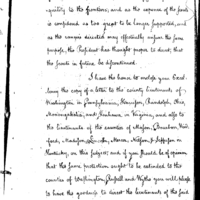 quility to the frontiers, and as the expense of the scouts
is considered as too great to be longer supported, and
as the rangers directed may effectually answer the same
purpose, the President has thought proper to direct, that
the scouts in future be discontinued.
I have the honor to enclose your Excel-
lency the copy of a letter to the county lieutenants of
Washington in Pennsylvania, Harrison, Randolph, Ohio,
Monongahalia, and Kenhawa in Virginia, and also to
the lieutenants of the counties of Mason, Bourbon, Wood-
ford, Madison, Lincoln, Mercer, Nelson, & Jefferson in
Kentucky, on this subject, and if you should be of opinion
that the same protection ought to be extended to the
counties of Washington, Russell and Wythe you will please
to have the goodness to direct the lieutenants of the said